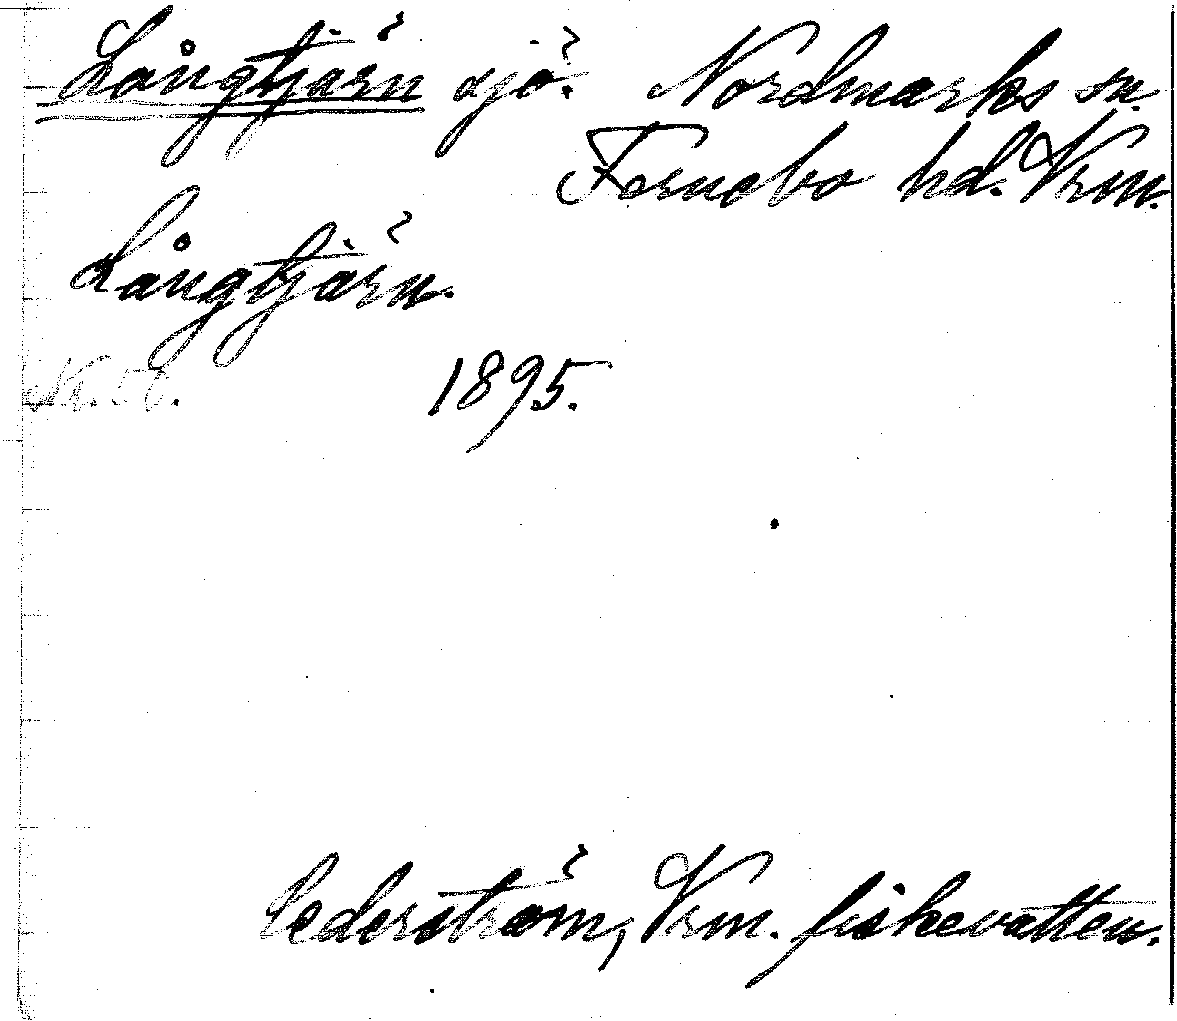 Långtjärn sjö. Nordmarks sn.
Fernebo hd. Vrm.
Långtjärn.
Nr. 56. 1895.
Cederström, Vrm. fiskevatten.